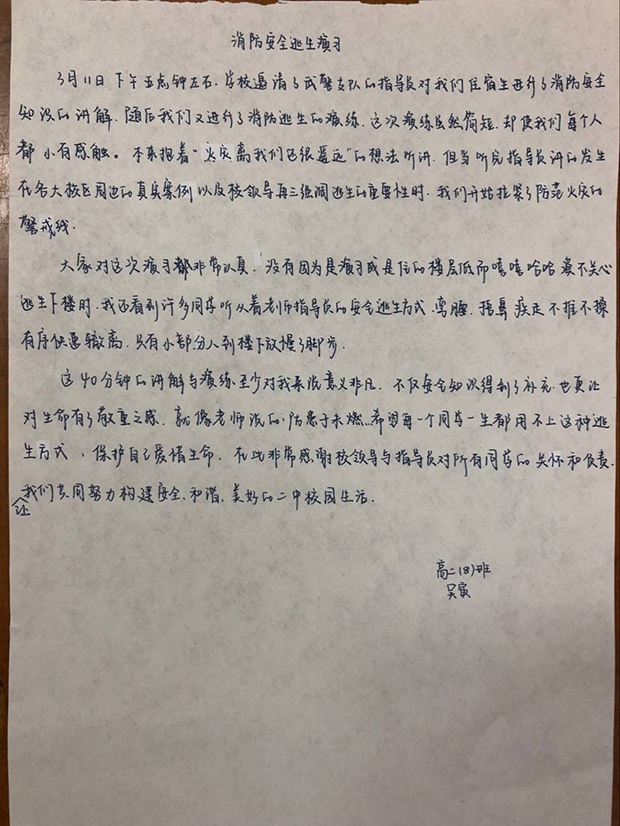 消防安全逃生演习
3月11日下午五点钟左右,学校邀请了武警支队的指导员对我们住宿生进行了消防安全
知识的讲解,随后我们又进行了消防逃生的演练,这次演练虽然简短,却使我们每个人
都小有感触。本来抱着“火灾离我们还很遥远”的想法听讲,但当听完指导员讲的发生
在各大校区周边的真实案例以及校领导再三强调逃生的重要性时,我们开始拉紧了防范火灾的
警戒线.
大家对这次演习都非常认真,没有因为是演习或是住的楼层低而嘻嘻哈哈漠不关心
逃生下楼时,我还看到许多同学听从着老师指导员的安全逃生方式,弯腰,捂鼻疾走不推不搡
有序快速撤离,只有小部分人到楼下放慢了脚步.
这40分钟的讲解与演练至少对我来说意义非凡,不仅安全知识得到了补充,也更让
对生命有了敬重之感,就像老师说的:防患于未燃.希望每一个同学一生都用不上这种逃
生方式,保护自己爱惜生命,在此非常感谢校领导与指导员对所有同学的关怀和负责.
让我们共同努力构建安全,和谐,美好的二中校园生活.
高二(8)班
吴寅